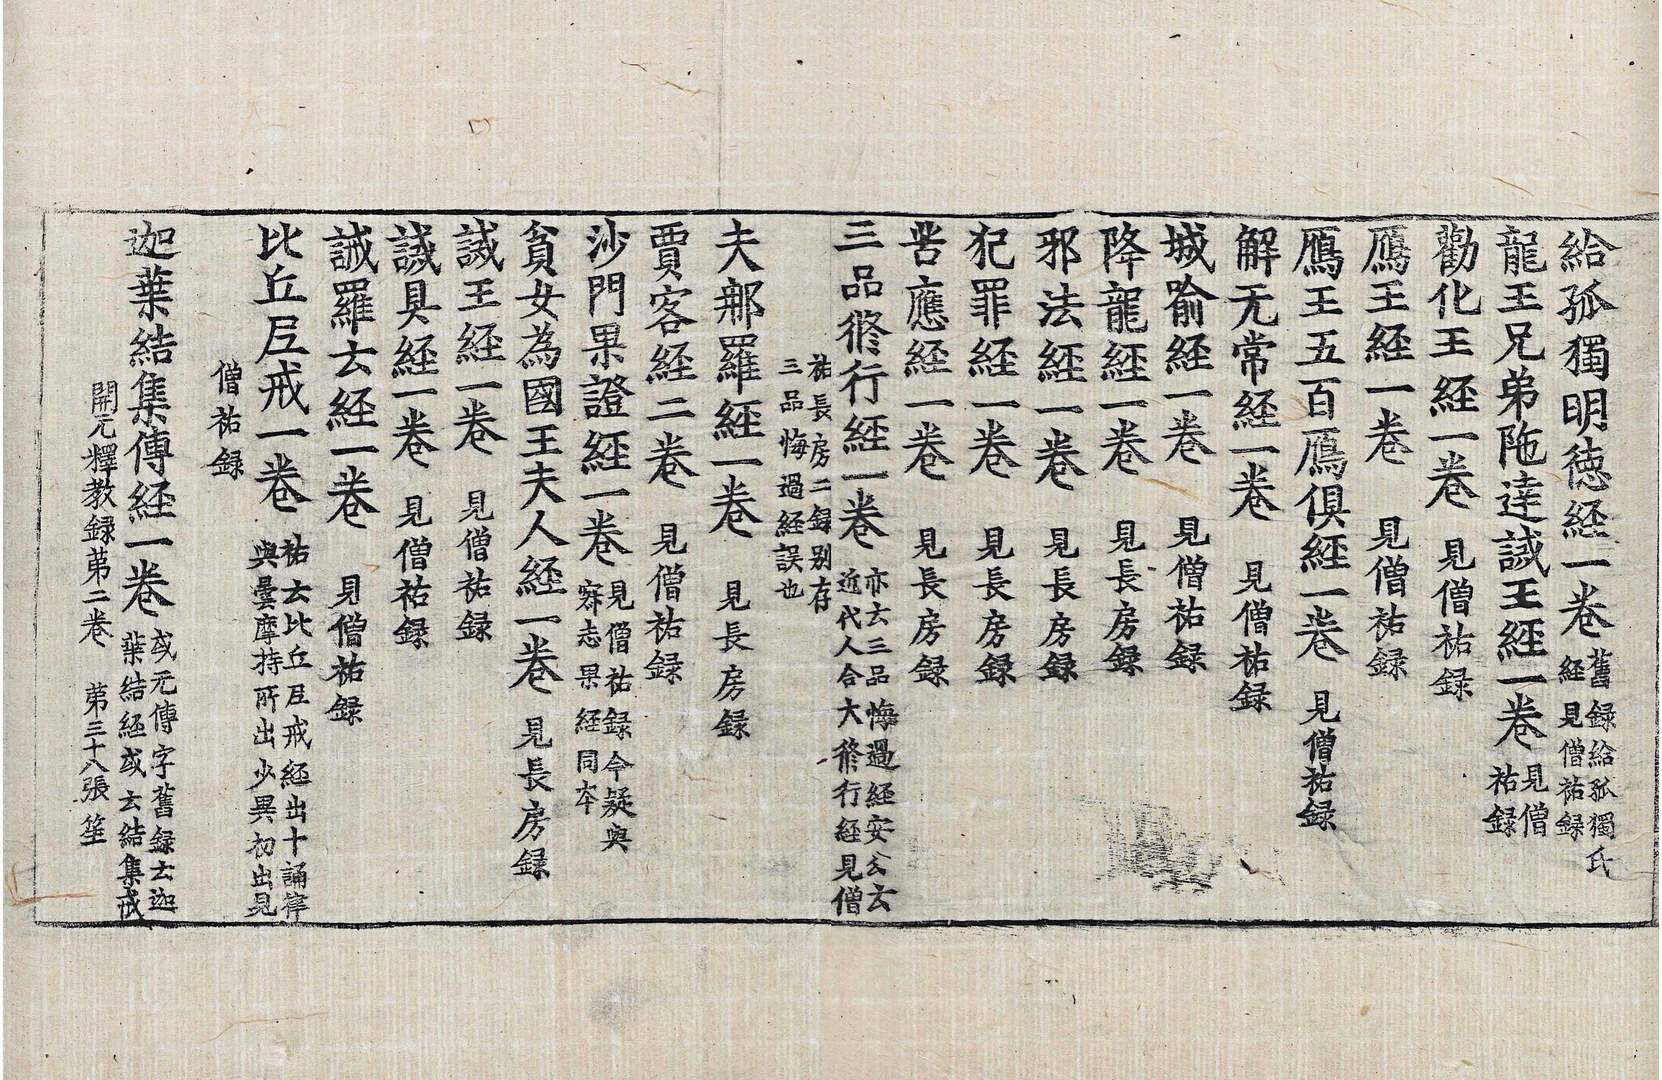 給孤獨明徳経一卷 舊録給孤獨氏
経見僧祐録
龍王兄弟陁達誡王経一卷 見僧
祐録
勸化王経一卷 見僧祐録
鴈王経一卷 見僧祐録
鴈王五百鴈俱経一卷 見僧祐録
解无常経一卷 見僧祐録
城喻経一卷 見僧祐録
降龍経一卷 見長房録
邪法経一卷 見長房録
犯罪経一卷 見長房録
苦應経一卷 見長房録
三品修行経一卷 亦云三品悔過経安公云
近代人合大修行経見僧
祐長房二録别存
三品悔過経誤也
夫那羅経一卷 見長房録
賈客経二卷 見僧祐録
沙門果證経一卷 見僧祐録今疑與
寂志果経同本
貧女為國王夫人経一卷 見長房録
誡王経一卷 見僧祐録
誡具経一卷 見僧祐録
誡羅云経一卷 見僧祐録
比丘尼戒一卷 祐云比丘尼戒経出十誦律
與曇摩持所出少異初出見
僧祐録
迦葉結集傳経一卷 或无傳字舊録云迦
葉結経或云結集戒
開元釋教録苐二卷 苐三十八張 笙